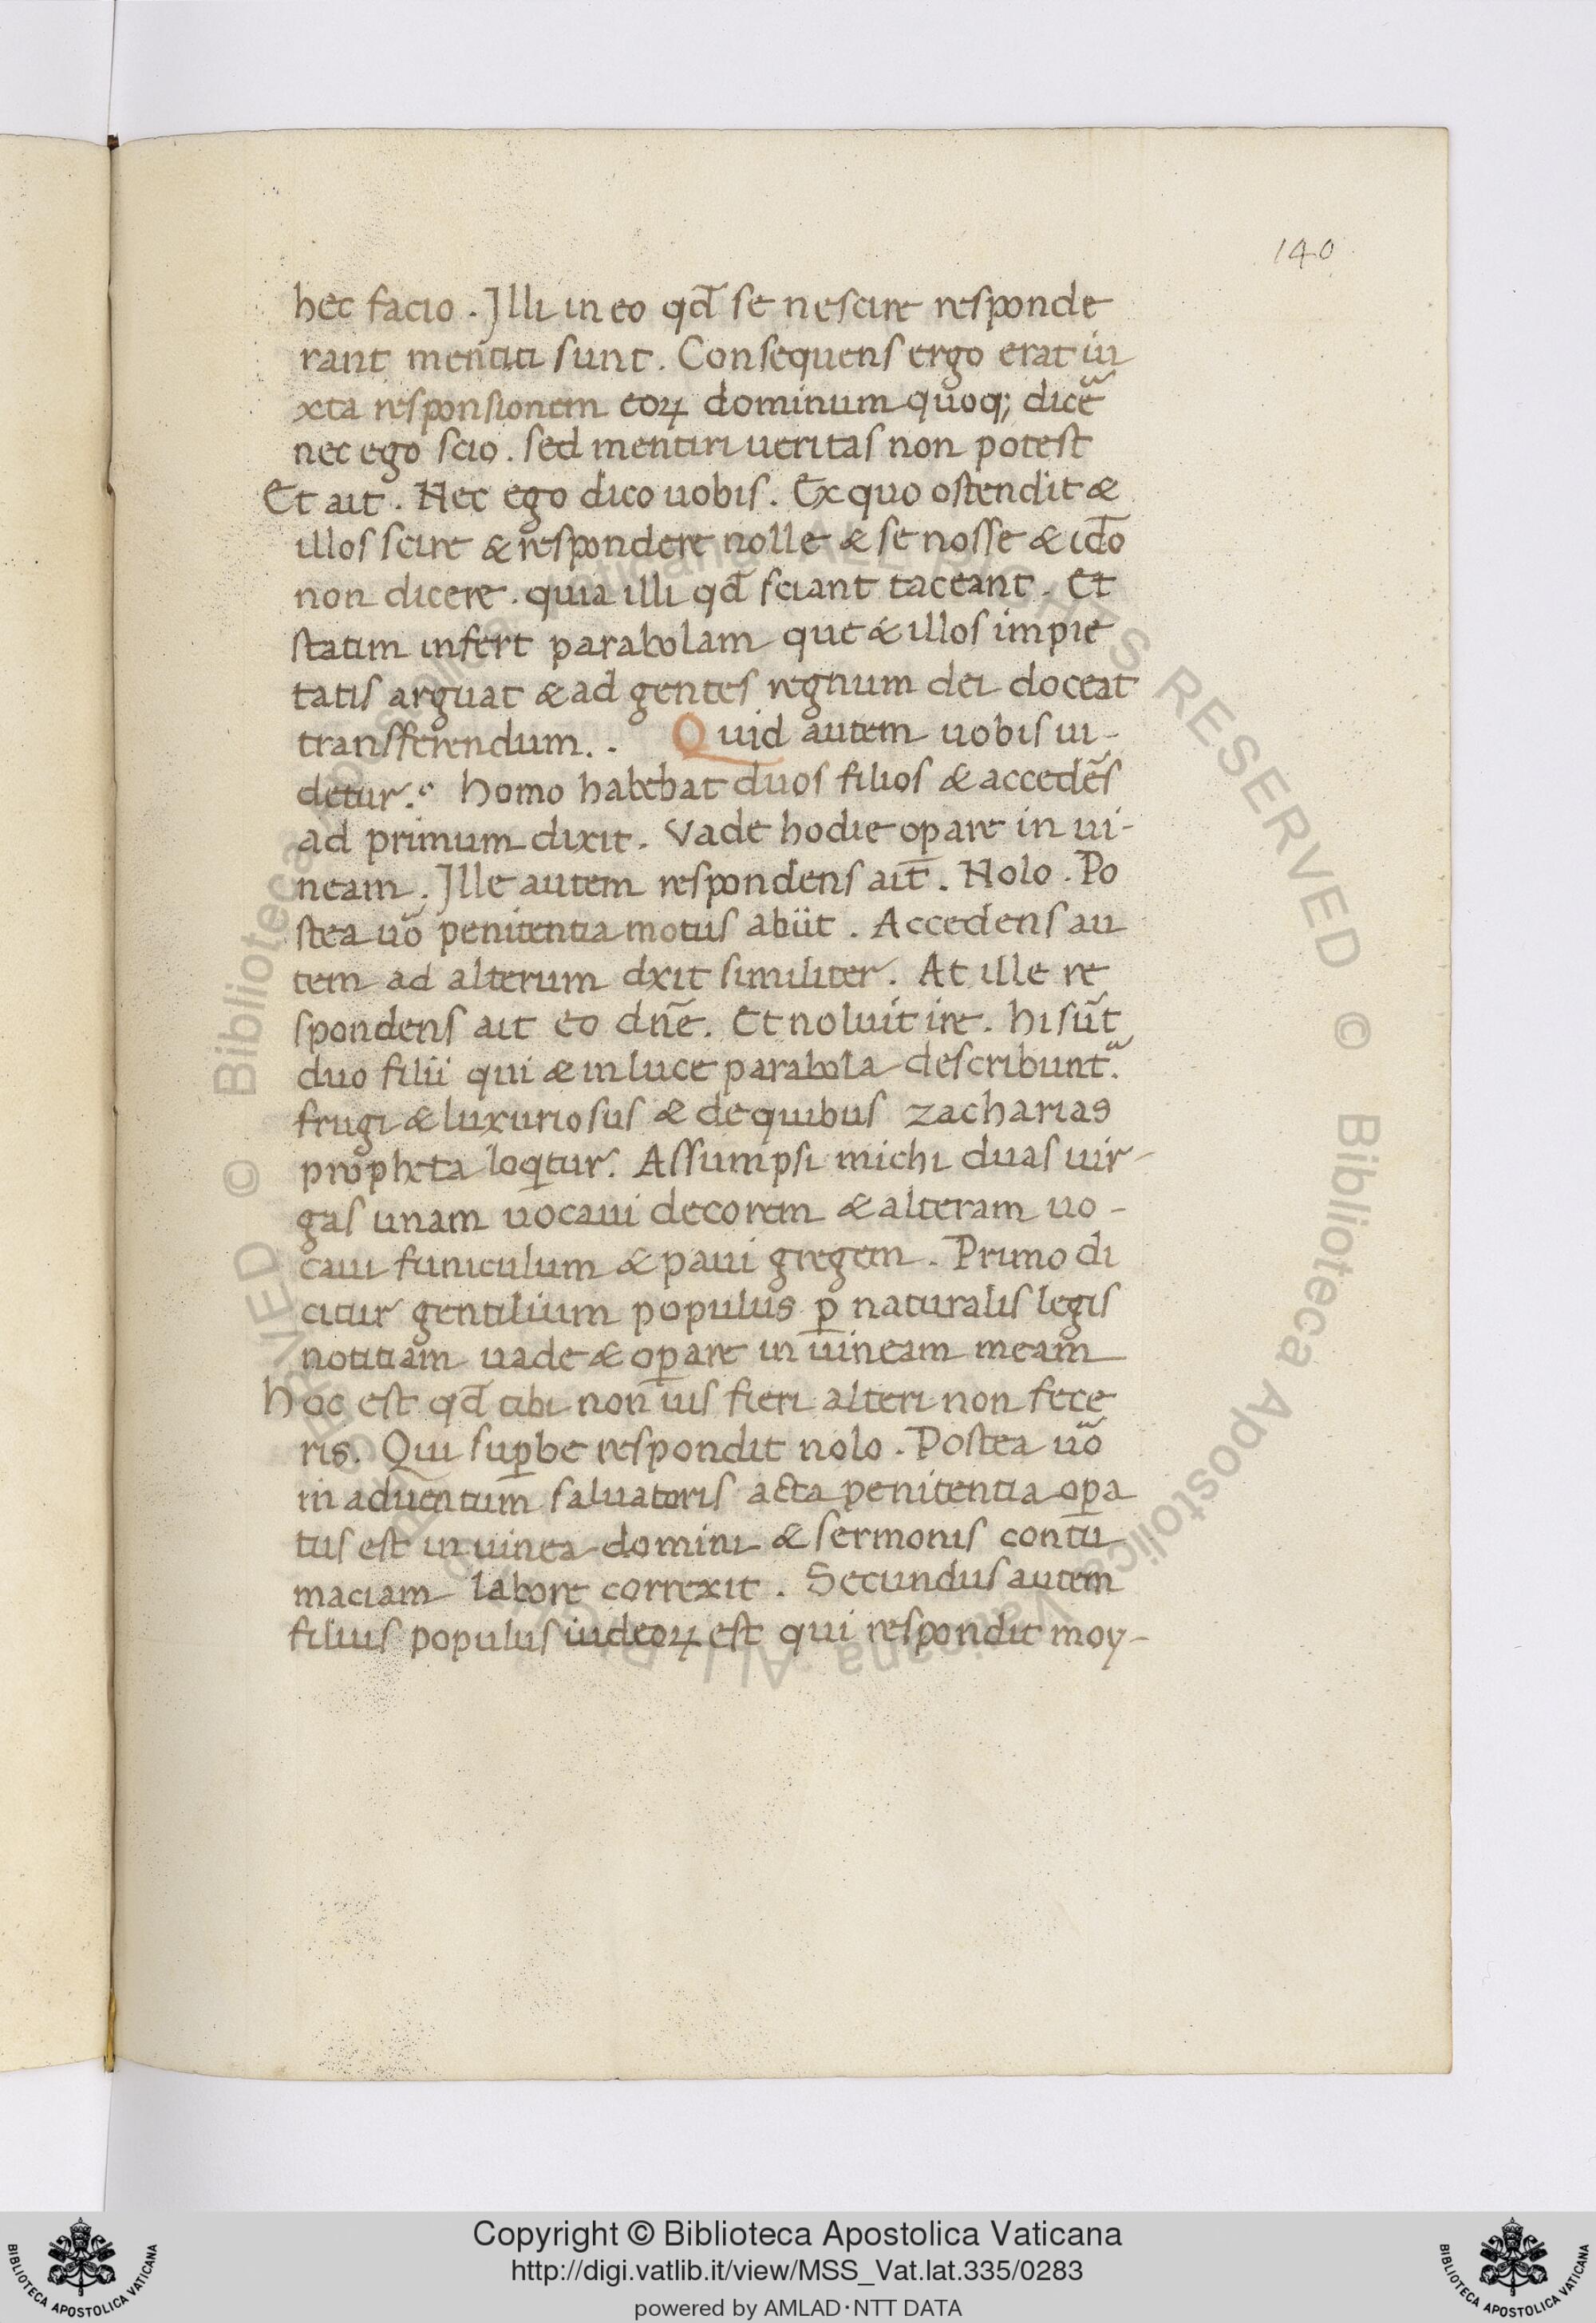 140
hec facio. Illi in eo qd̄ se nescire responde
rant mentiti sunt. Consequens ergo erat iu
xta responsionem eoꝝ dominum quoq; dicē
nec ego scio. sed mentiri ueritas non potest
Et ait. Nec ego dico uobis. Ex quo ostendit &
illos scire & respondere nolle & se nosse & idō
non dicere. quia illi qd̄ sciant taceant. Et
statim infert parabolam que & illos impie
tatis arguat & ad gentes regnum dei doceat
transferendum.. Quid autem uobis ui-
detur.? homo habebat duos filios & accedēs
ad primum dixit. Vade hodie oꝑare in ui-
neam. Ille autem respondens ait̄. Nolo. Po
stea uō penitentia motus abiit. Accedens au
tem ad alterum dxit similiter. At ille re
spondens ait eo dn̄e. Et noluit ire. hi sūt
duo filii qui & in luce parabola describunt᷑.
frugi & luxuriosus & de quibus zacharias
propheta loqitur. Assumpsi michi duas uir-
gas unam uocaui decorem & alteram uo-
caui funiculum & paui gregem. Primo di
citur gentilium populus ꝑ naturalis legis
notitiam uade & oꝑare in uineam meam
hoc est qd̄ tibi non uis fieri alteri non fece
ris. Qui suꝑbe respondit nolo. Postea uō
in aduentum saluatoris acta penitentia oꝑa
tus est in uinea domini & sermonis contu
maciam labore correxit. Secundus autem
filius populus iudeoꝝ est qui respondit moy-
Copyright © Biblioteca Apostolica Vaticana
http://digi.vatlib.it/view/MSS_Vat.lat.335/0283
powered by AMLAD·NTT DATA